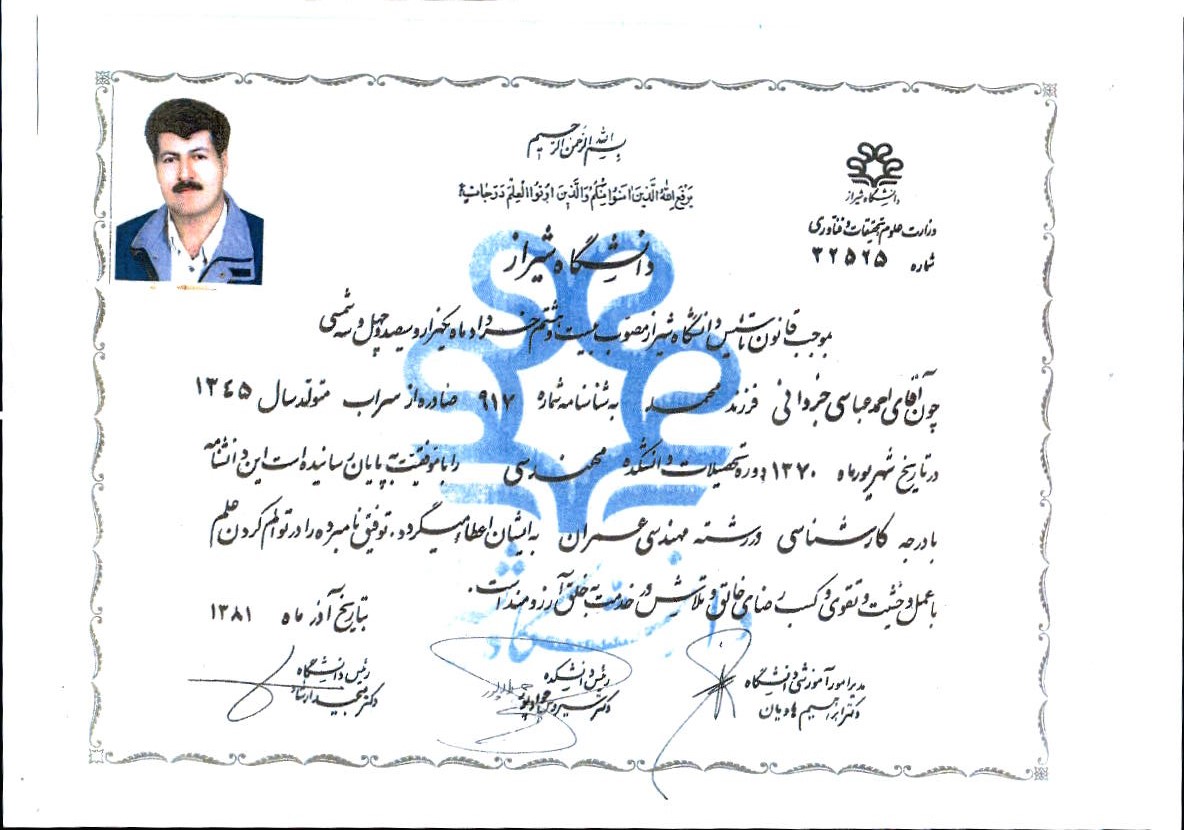 بسم الله الرحمن الرحیم
یرفع الله الذین امنوا منکم والذین اوتوا العلم درجات
دانشگاه شیراز
وزارت علوم تحقیقات و فناوری
شماره ۳۲۵۶۵
دانشگاه شیراز
بموجب قانون تأسیس دانشگاه شیراز مصوب بیست و هشتم خرداد ماه یکهزار و سیصد و چهل و سه شمسی
چون آقای احمد عباسی خزدانی فرزند محمد به شناسنامه شماره ۹۱۷ صادره از سراب متولد سال ۱۳۴۵
در تاریخ شهریور ماه ۱۳۷۰ دوره تحصیلات دانشکده مهندسی را با موفقیت به پایان رسانیده است این دانشنامه
با درجه کارشناسی در رشته مهندسی عمران به ایشان اعطاء میگردد. توفیق نامبرده را در توأم کردن علم
با عمل و خشیت و تقوی و کسب رضای خالق و تلاش در خدمت به خلق آرزومند است.
بتاریخ آذر ماه ۱۳۸۱
مدیر امور آموزشی دانشگاه
دکتر ابراهیم هادیان
رئیس دانشکده
دکتر سیروس جوادپور
رئیس دانشگاه
دکتر مجید ارشاد
دانشگاه شیراز